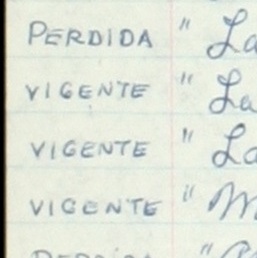 PERDIDA " La
VIGENTE " La
VIGENTE " La
VIGENTE " M